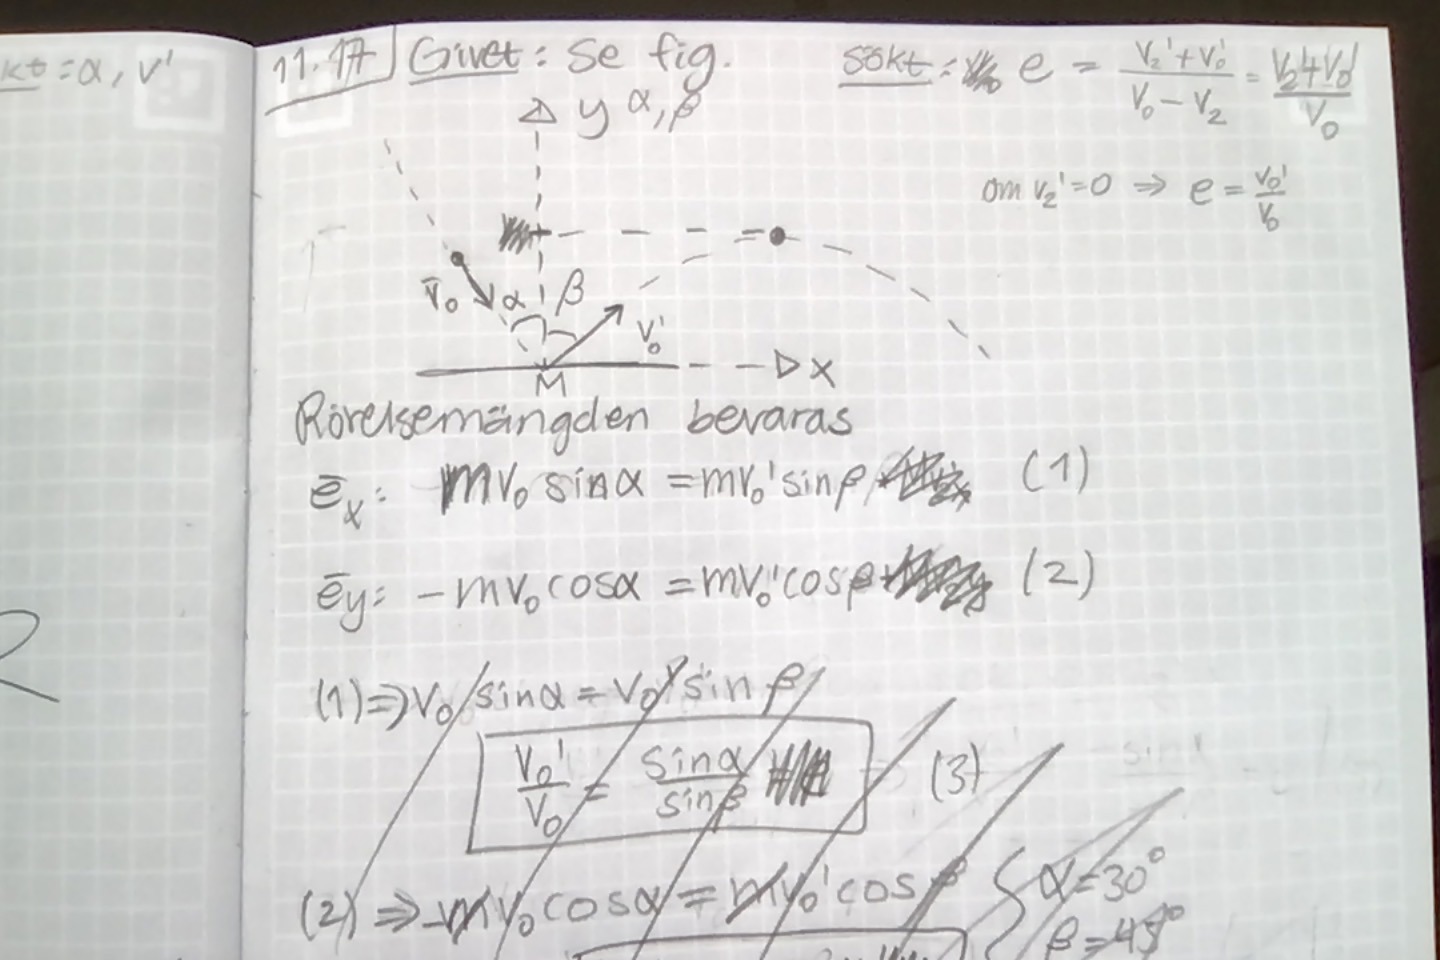 kt = α, v'
11.17 Givet: Se fig.
Sökt: e = \frac{v_2' + v_0'}{v_0 - v_2} = \frac{v_2' + v_0'}{v_0}
y α, β
om v_2' = 0 ⇒ e = \frac{v_0'}{v_0}
v̄_0 α β
v_0'
M
x
Rörelsemängden bevaras
ē_x: mv_0 sinα = mv_0' sinβ (1)
ē_y: -mv_0 cosα = mv_0' cosβ (2)
(1) ⇒ v_0 sinα = v_0' sinβ
\frac{v_0'}{v_0} = \frac{sinα}{sinβ} (3)
(2) ⇒ -mv_0 cosα = mv_0' cosβ { α = 30°
β = 45°